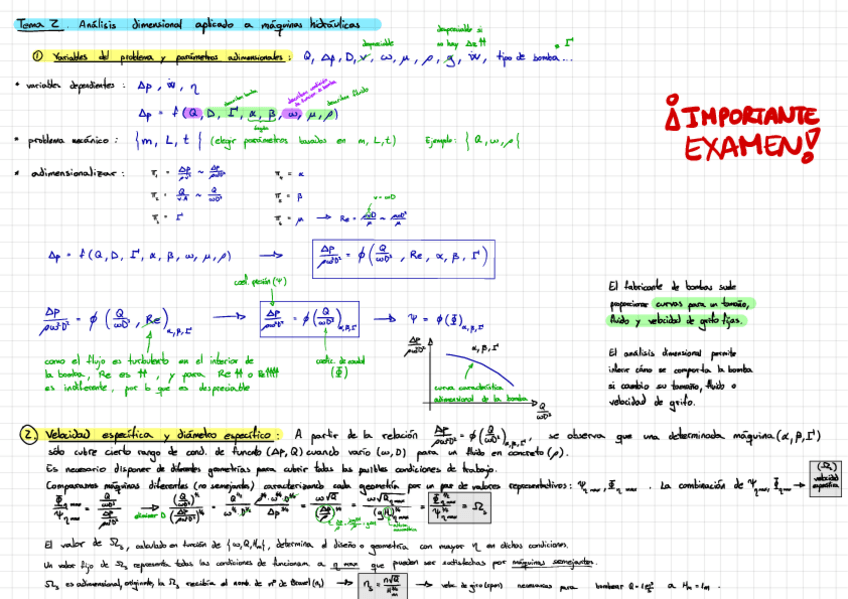 Tema 2. Análisis dimensional aplicado a máquinas hidráulicas
① Variables del problema y parámetros adimensionales: Q, Δp, D, v, ω, μ, ρ, g, Ẇ, tipo de bomba...
despreciable
despreciable si no hay Δz ↑↑
• Γ
• variables dependientes: Δp, Ẇ, η
Δp = f(Q, D, Γ, α, β, ω, μ, ρ)
describen bomba
describen fluido
• problema mecánico: {m, L, t} (elegir parámetros basados en m, L, t) Ejemplo: {Q, ω, ρ}
¡IMPORTANTE
EXAMEN!
• adimensionalizar: π₁ = Δp/ρv² ~ Δp/ρω²D² π₄ = α
π₂ = Q/vA ~ Q/ωD³ π₅ = β
v = ωD
π₃ = Γ π₆ = μ → Re = ρvD/μ ~ ρωD²/μ
Δp = f(Q, D, Γ, α, β, ω, μ, ρ) → Δp/ρω²D² = ϕ(Q/ωD³, Re, α, β, Γ)
coef. presión (Ψ)
Δp/ρω²D² = ϕ(Q/ωD³, Re)α,β,Γ → Δp/ρω²D² = ϕ(Q/ωD³)α,β,Γ → Ψ = ϕ(Φ)α,β,Γ
como el flujo es turbulento en el interior de
la bomba, Re es ↑↑, y para Re ↑↑ o Re ↑↑↑↑
es indiferente, por lo que es despreciable
coefic. de caudal
(Φ)
Δp/ρω²D²
α, β, Γ
curva característica
adimensional de la bomba
Q/ωD³
El fabricante de bombas suele
proporcionar curvas para un tamaño,
fluido y velocidad de grifo fijas.
El análisis dimensional permite
inferir cómo se comporta la bomba
si cambio su tamaño, fluido o
velocidad de grifo.
②. Velocidad específica y diámetro específico: A partir de la relación Δp/ρω²D² = ϕ(Q/ωD³)α,β,Γ, se observa que una determinada máquina (α, β, Γ)
sólo cubre cierto rango de cond. de functo (Δp, Q) cuando varío (ω, D) para un fluido en concreto (ρ).
Es necesario disponer de diferentes geometrías para cubrir todas las posibles condiciones de trabajo.
Comparamos máquinas diferentes (no semejantes) caracterizando cada geometría por un par de valores representativos: Ψη max, Φη max. La combinación de Ψη max, Φη max →
(Ωs)
velocidad
específica
eliminar D
El valor de Ωs, calculado en función de {ω, Q, Hm}, determina el diseño o geometría con mayor η en dichas condiciones.
Un valor fijo de Ωs representa todas las condiciones de funcionam a η max que pueden ser satisfechas por máquinas semejantes.
Ωs es adimensional, originalmte, la Ωs recibía el nomb. de nº de Brauel (ns) → ns = n√Q/Hm^3/4 → veloc. de giro (rpm) necesarias para bombear Q = 1 m³/s a Hm = 1m.